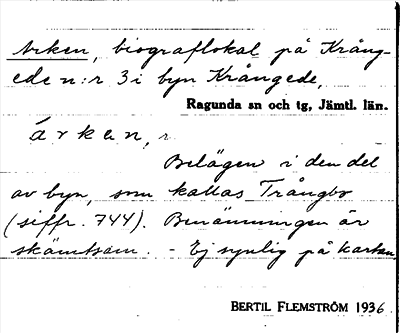 Arken, biograflokal på Krång-
ede n:r 3 i byn Krångede,
Ragunda sn och tg, Jämtl. län.
árken, r.
Belägen i den del
av byn, som kallas Trångbo
(siffr. 744). Benämningen är
skämtsam. - Ej synlig på kartan
BERTIL FLEMSTRÖM 1936.